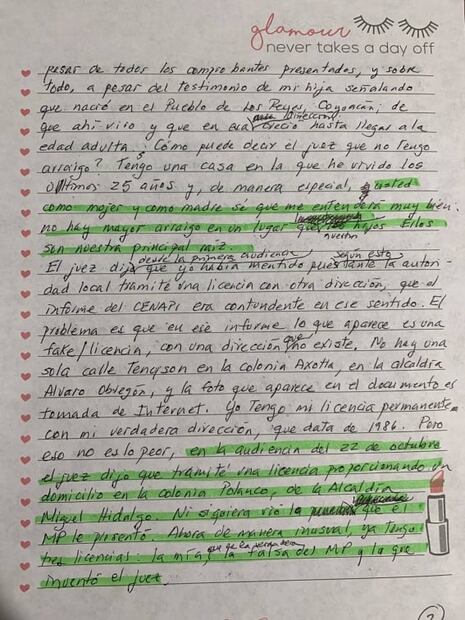 glamour
never takes a day off
pesar de todos los comprobantes presentados, y sobre
todo, a pesar del testimonio de mi hija señalando
que nació en el Pueblo de Los Reyes, Coyoacán; de
que ahí vivo y que en esa dirección creció hasta llegar a la
edad adulta. ¿Cómo puede decir el juez que no tengo
arraigo? Tengo una casa en la que he vivido los
últimos 25 años y, de manera especial, usted
como mujer y como madre sé que me entenderá muy bien:
no hay mayor arraigo en un lugar que nuestros hijos. Ellos
son nuestra principal raíz.
El juez dijo desde la primera audiencia que yo había mentido pues según esto ante la autori-
dad local tramité una licencia con otra dirección, que el
informe del CENAPI era contundente en ese sentido. El
problema es que en ese informe lo que aparece es una
fake/licencia, con una dirección que no existe. No hay una
sola calle Tenyson en la colonia Axotla, en la alcaldía
Alvaro Obregón, y la foto que aparece en el documento es
tomada de Internet. Yo tengo mi licencia permanente
con mi verdadera dirección, que data de 1986. Pero
eso no es lo peor, en la audiencia del 22 de octubre
el juez dijo que tramité una licencia proporcionando un
domicilio en la colonia Polanco, de la Alcaldía
Miguel Hidalgo. Ni siquiera vio la que el
MP le presentó. Ahora de manera inusual, ya tengo
tres licencias: la mía, que es la verdadera la falsa del MP y la que
inventó el juez.
2